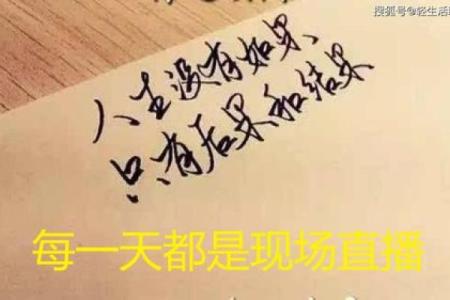 搜狐号@轻生活
人生没有如果、
只有后果和结果
每一天都是现场直播